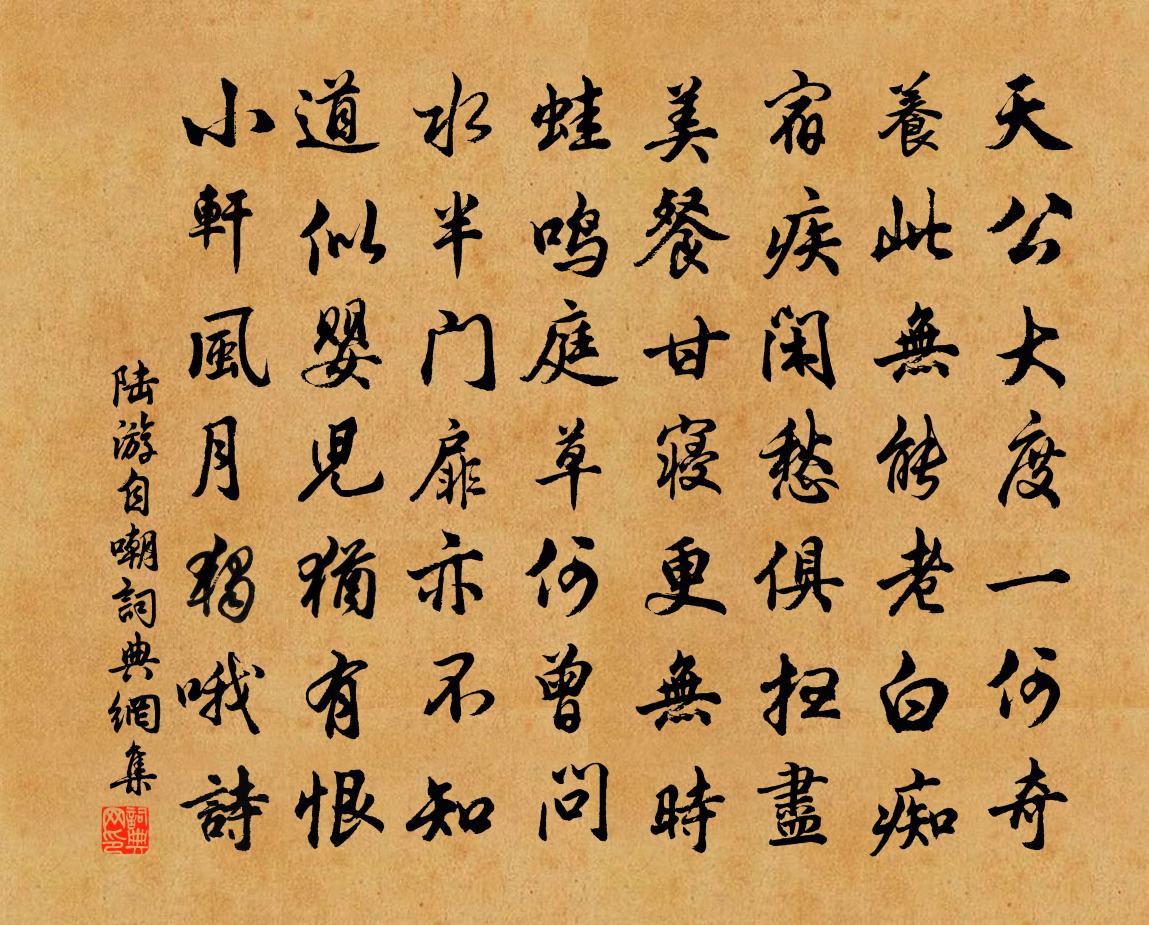 天公大度一何奇
養此無能老白痴
宿疾閑愁俱扫盡
美餐甘寝更無時
蛙鸣庭草何曾問
水半门扉亦不知
道似嬰児猶有恨
小軒風月獨哦詩
陆游自嘲詞典網集
詞典网印